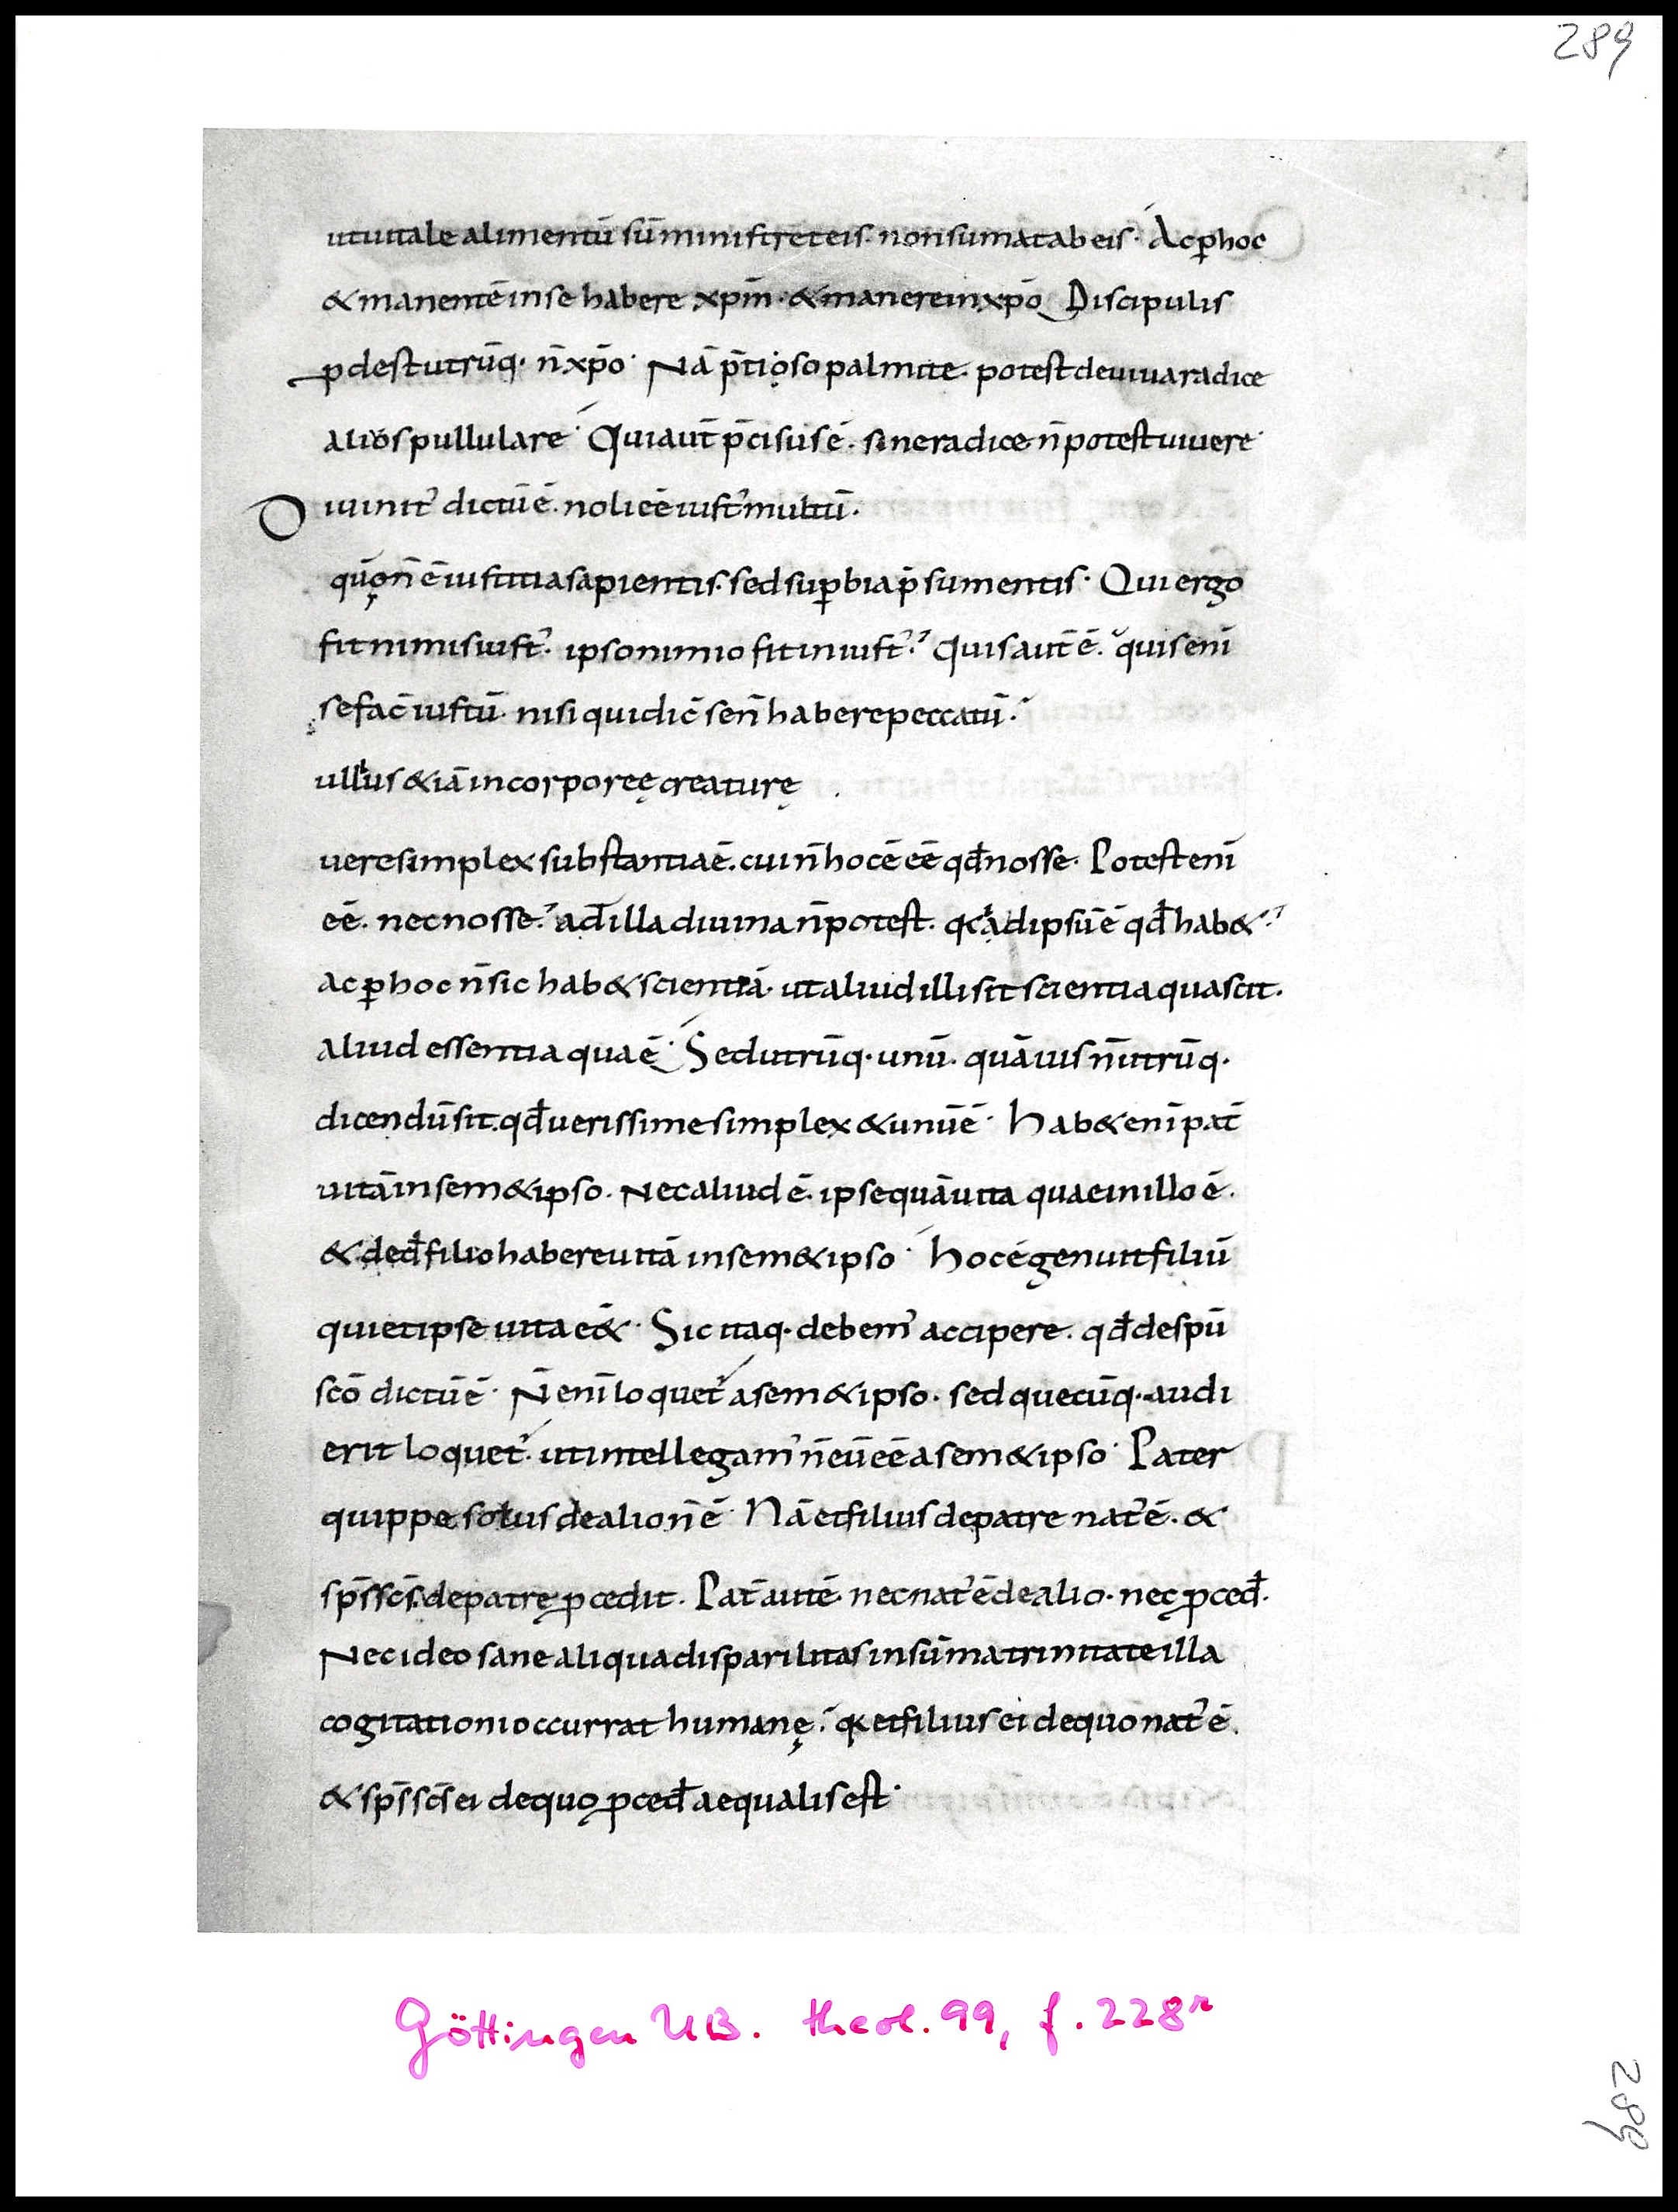 289
ut uitale alimentū sūministret eis. non sumat ab eis. Ac ꝑ hoc
& manentē in se habere xp̄m. & manere in xp̄o Discipulis
ꝓdest utrūq. n̄ xp̄o. Nā p̄ciso palmite. potest de uiua radice
alius pullulare. Qui aut̄ p̄cisus ē. sine radice n̄ potest uiuere
Diuinit᾽ dictū ē. noli eē iust᾽ multū.
qūo n̄ ē iustitia sapientis. sed suꝑbia p̄sumentis. Qui ergo
fit nimis iust᾽. ipso nimio fit iniust᾽. Quis aut̄ ē. quis eni̅
se fac̄ iustū. nisi qui dic̄ se n̄ habere peccatū.
ullius &iā incorporeę creaturę
uere simplex substantia ē. cui n̄ hoc ē eē qđ nosse. Potest eni̅
eē. nec nosse. ad̄ illa diuina n̄ potest. q&ͥ ad ipsū ē qđ hab&.
ac ꝑ hoc n̄ sic hab& scientiā. ut aliud illi sit scientia qua scit.
aliud essentia qua ē. Sed utrūq. unū. quāuis n̄ utrūq.
dicendū sit. qđ uerissime simplex & unū ē. Hab& eni̅ pat̄
uitā in sem&ipso. Nec aliud ē. ipse quā uita quae in illo ē.
& ded̄ filio habere uitā in sem&ipso. hoc ē genuit filiū
qui et ipse uita e&̄. Sic itaq. debem᾽ accipere. qđ de spū
sc̄o dictū ē. N̄ eni̅ loquet᾽ a sem&ipso. sed quecūq. audi
erit loquet᾽. ut intellegam᾽ n̄ eū eē a sem&ipso. Pater
quippe solus de alio n̄ ē. Nā et filius de patre nat᾽ ē. &
sp̄s sc̄s de patre ꝓcedit. Pat̄ autē nec nat᾽ ē de alio. nec ꝓced̄.
Nec ideo sane aliqua disparilitas in sūma trinitate illa
cogitationi occurrat humanę. q& et filius ei de quo nat᾽ ē.
& sp̄s sc̄s ei de quo ꝓced̄ aequalis est.
Göttingen UB. theol. 99, f. 228r
289